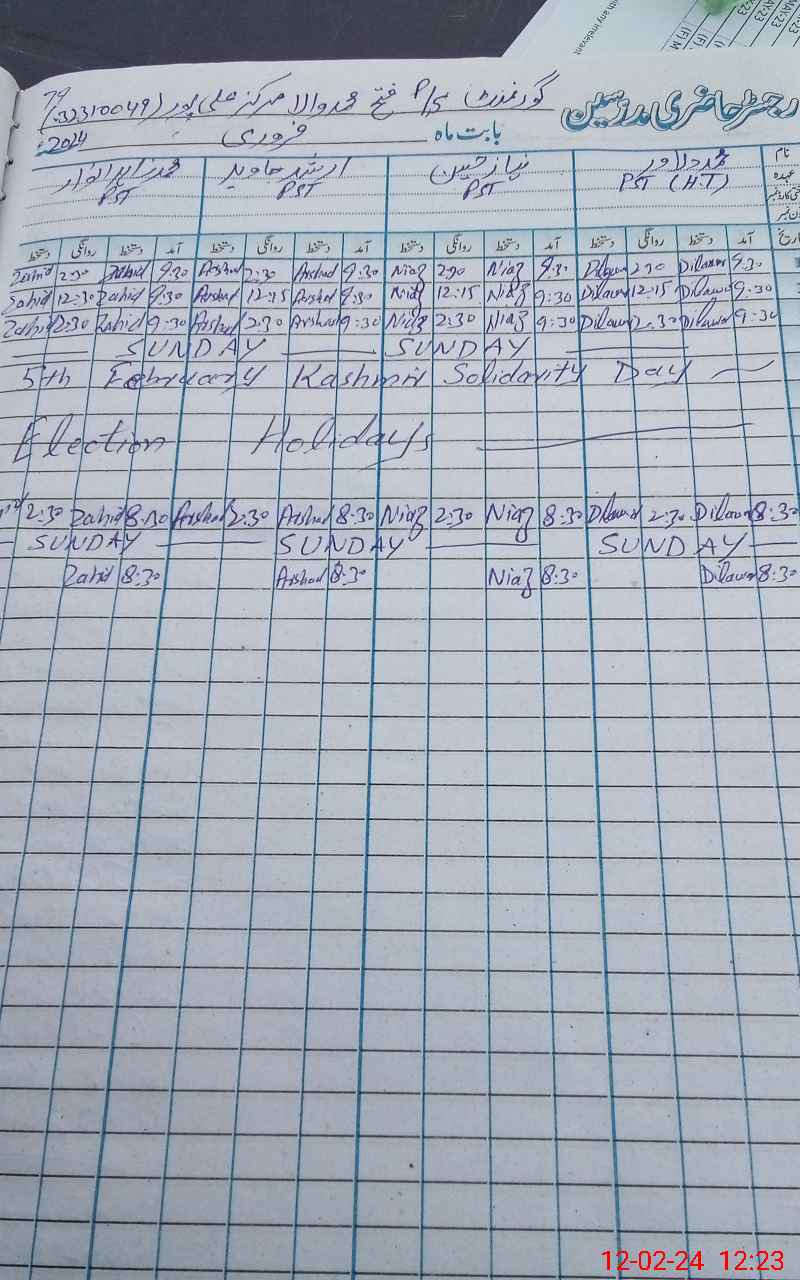 with any irrelevant
79
گورنمنٹ P/S فتح محمد والا مرکز علی پور (32310049)
رجسٹر حاضری مدرسین
بابت ماہ فروری 2024ء
نام محمد دلاور نیاز حسین ارشد جاوید
عہدہ PST (H.T) PST PST PST
تاریخ آمد دستخط روانگی دستخط آمد دستخط روانگی دستخط آمد دستخط روانگی دستخط آمد دستخط روانگی دستخط
Zahid 2:30 Zahid 9:30 Arshad 2:30 Arshad 9:30 Niaz 2:30 Niaz 9:30 Dilawar 2:30 Dilawar 9:30
Zahid 12:30 Zahid 9:30 Arshad 12:15 Arshad 9:30 Niaz 12:15 Niaz 9:30 Dilawar 12:15 Dilawar 9:30
Zahid 2:30 Zahid 9:30 Arshad 2:30 Arshad 9:30 Niaz 2:30 Niaz 9:30 Dilawar 2:30 Dilawar 9:30
SUNDAY SUNDAY
5th February Kashmir Solidarity Day
Election Holidays
2:30 Zahid 8:30 Arshad 2:30 Arshad 8:30 Niaz 2:30 Niaz 8:30 Dilawar 2:30 Dilawar 8:30
SUNDAY SUNDAY SUNDAY
Zahid 8:30 Arshad 8:30 Niaz 8:30 Dilawar 8:30
12-02-24 12:23